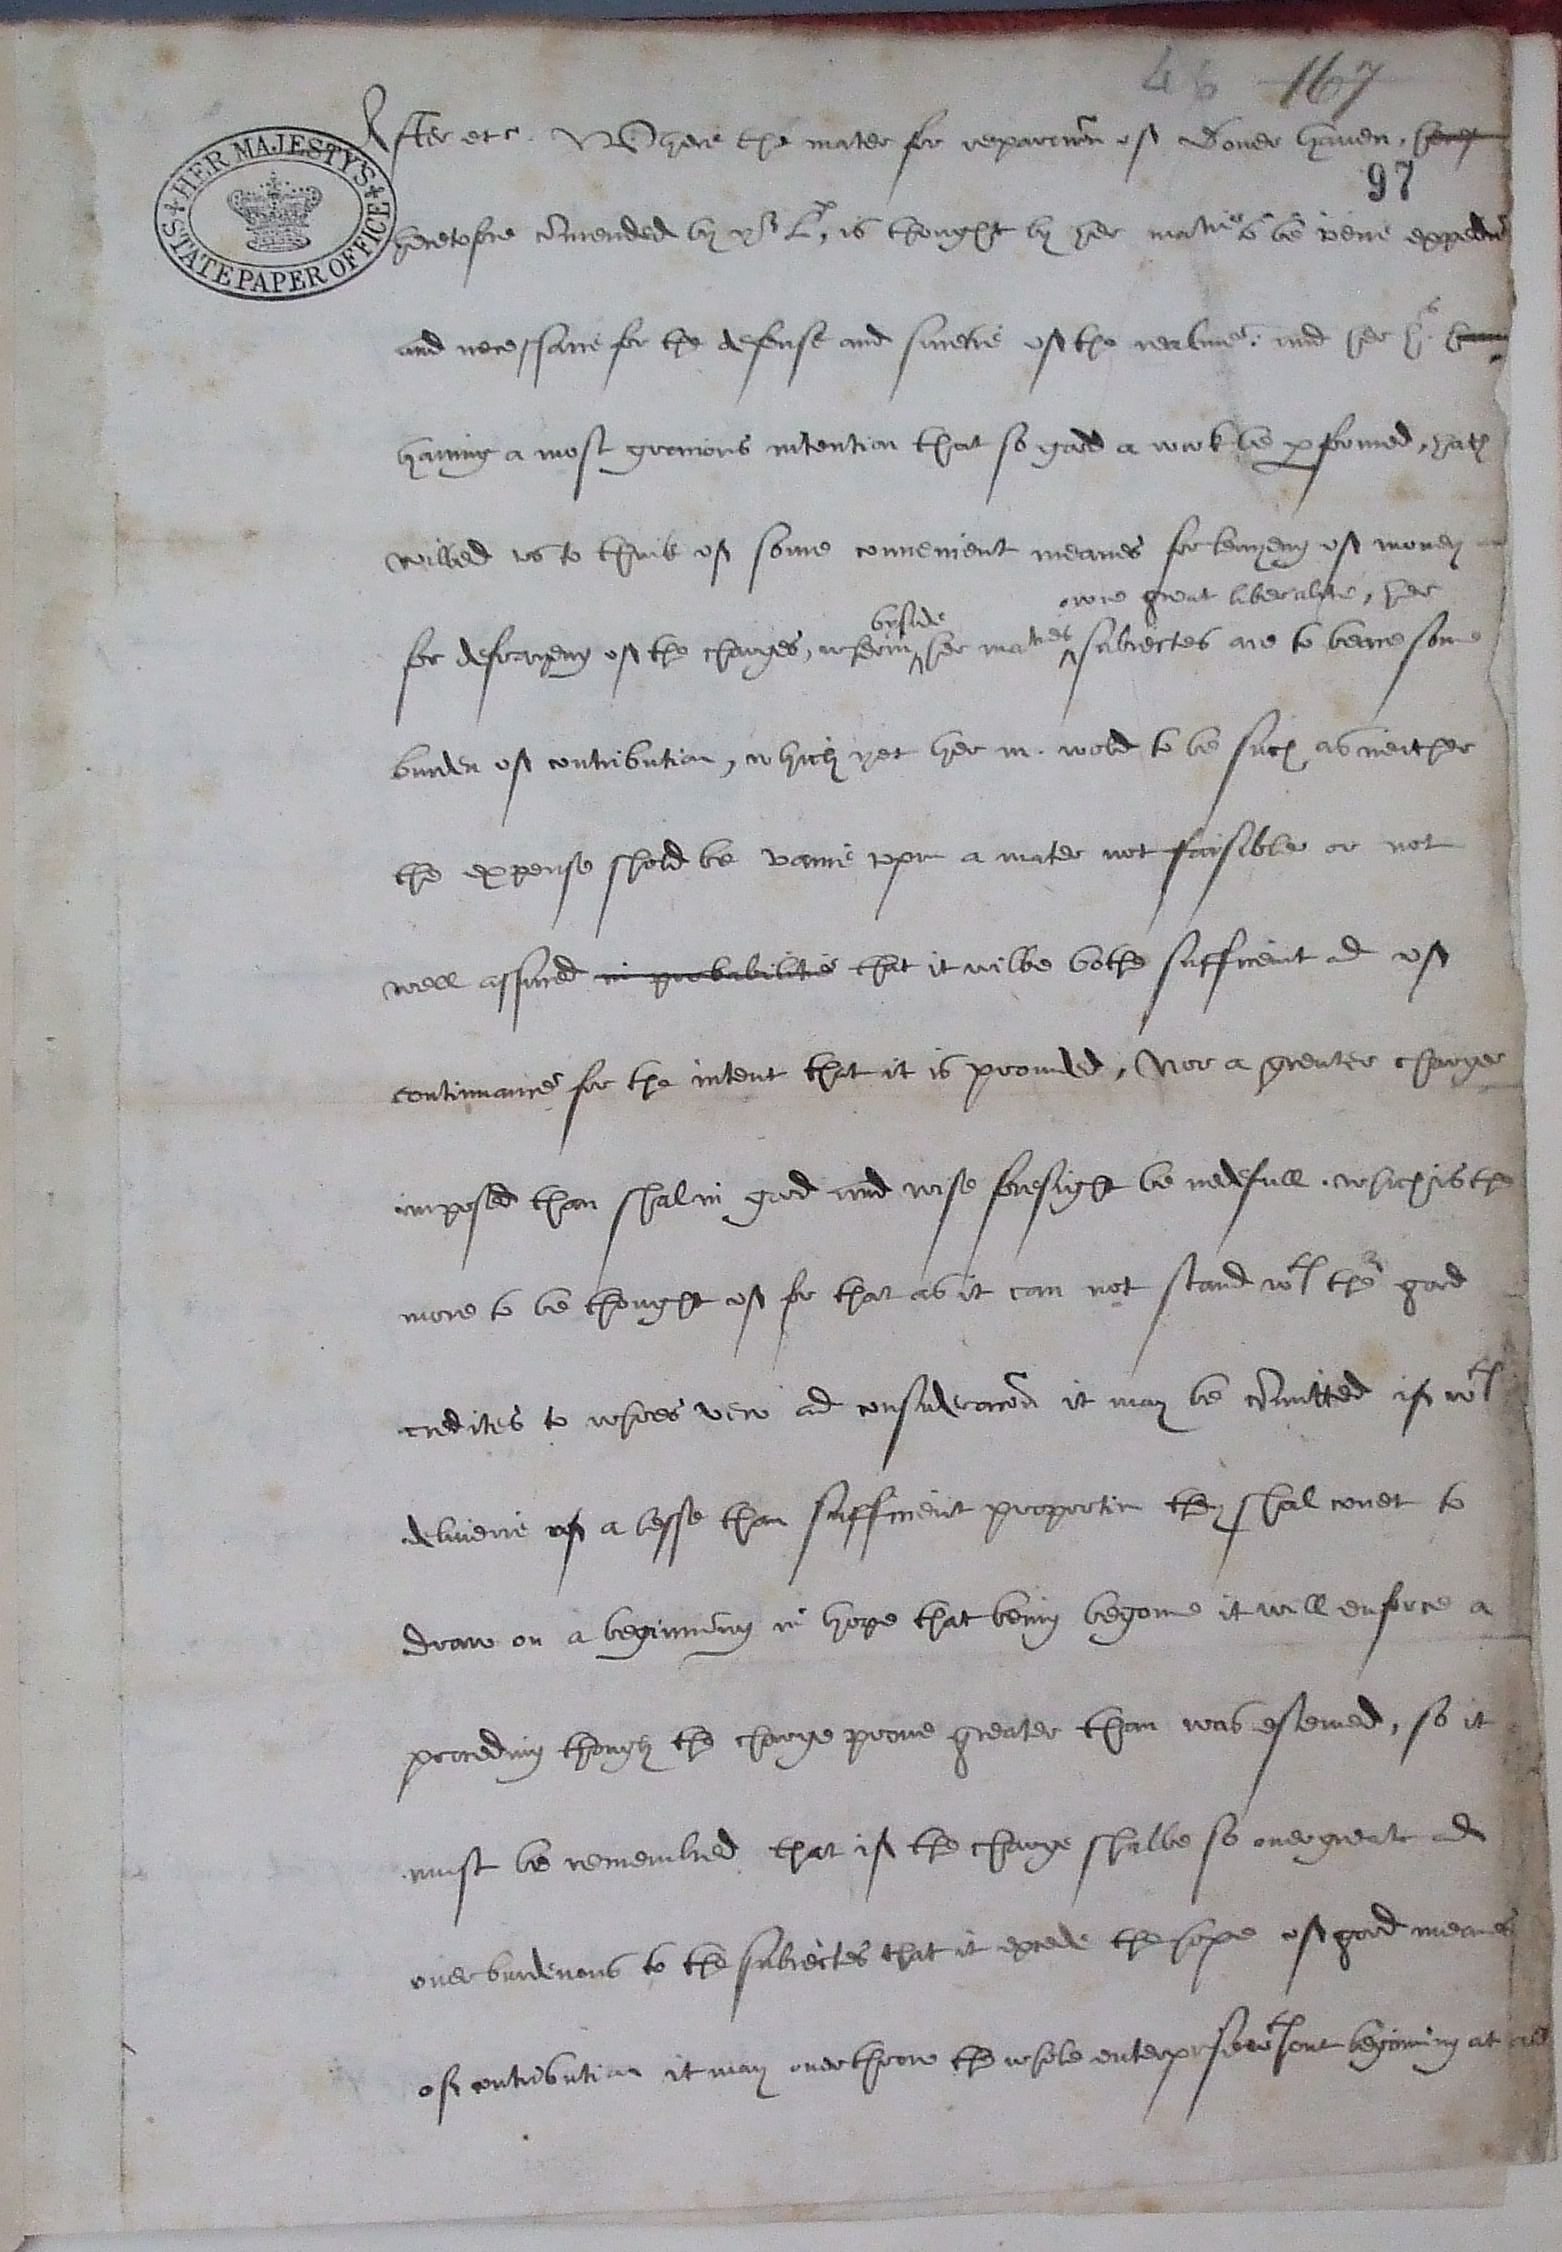 46 167
After etc. Where the mater for reparacion of Dover haven,
97
HER MAJESTY'S STATE PAPER OFFICE
heretofore comended by yor L., is thought by her matie to be verie expedient
and necessarie for the defense and suretie of the realme. and her h.
having a most gracious intention that so good a work be performed, hath
willed us to think of some convenient meanes for levyeng of money
owne great liberalitie, her
byside
for defrayeng of the charges, wherin her maties subiectes are to beare some
burden of contribution, which yet her m. wold to be such as neither
the expense shold be vaine upon a mater not faisible or not
well assured in probabilitie that it wilbe bothe sufficient ad of
continuance for the intent that it is provided, Nor a greater charge
imposed than shal in good and wise foresight be nedefull. which is the
more to be thought of for that as it can not stand wth their good
credites to whoes vew ad consideracon it may be comitted if wth
deliverie of a lesse than sufficient proportion they shal covet to
draw on a beginning in hope that being begonne it will enforce a
proceding though the charge prove greater than was estemed, so it
must be remembred that if the charge shalbe so overgreate ad
overburdenous to the subiectes that it excede the hope of good meanes
of contribution it may overthrow the whole enterprise wthout beginning at all